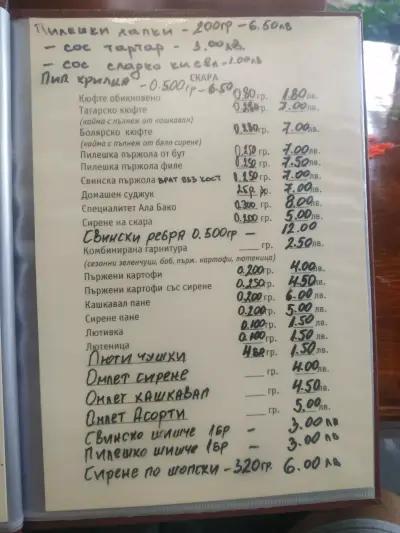 Пилешки хапки - 200гр - 6.50лв
- сос тартар - 1.00лв.
- сос сладко кисел - 1.00лв
СКАРА
Пил крилца - 0.500гр - 6.50
Кюфте обикновено 0,80 гр. 1.80 лв.
Татарско кюфте гр. 7.00 лв.
(кайма с пълнеж от кашкавал)
Болярско кюфте гр. 7.00 лв.
(кайма с пълнеж от бяло сирене)
Пилешка пържола от бут 0.250 гр. 7.00 лв.
Пилешка пържола филе 0.250 гр. 7.50 лв.
Свинска пържола ВРАТ БЕЗ КОСТ 0.250 гр. 7.00 лв.
Домашен суджук гр. 7.00 лв.
Специалитет Ала Бако 0.300 гр. 8.00 лв.
Сирене на скара 0.200 гр. 5.00 лв.
Свински ребра 0.500гр - 12.00
Комбинирана гарнитура ___ гр. 2.50 лв.
(сезонни зеленчуци, боб, пърж. картофи, лютеница)
Пържени картофи 0.200 гр. 4.00 лв.
Пържени картофи със сирене 0.250 гр. 4.50 лв.
Кашкавал пане 0.200 гр. 6.00 лв.
Сирене пане 0.200 гр. 5.00 лв.
Лютивка 0.100 гр. 1.50 лв.
Лютеница 0.100 гр. 1.50 лв.
Люти чушки гр. 1.50 лв.
Омлет сирене ___ гр. 4.00 лв.
Омлет кашкавал ___ гр. 4.50 лв.
Омлет Асорти ___ гр. 5.00 лв.
Свинско шишче 1бр - 3.00 лв
Пилешко шишче 1бр - 3.00 лв
Сирене по шопски - 320гр. 6.00 лв